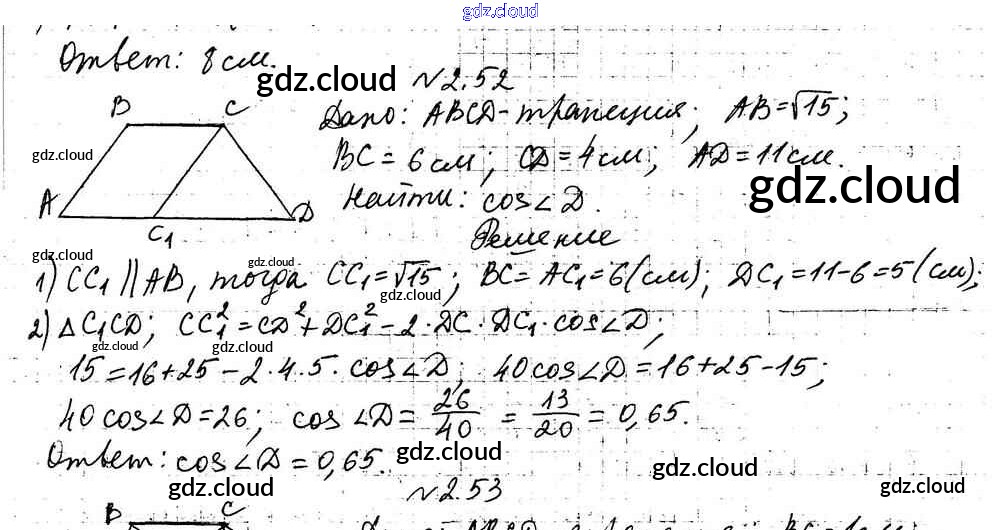 gdz.cloud
Ответ: 8 см.
gdz.cloud
№ 2.52
B C
Дано: ABCD - трапеция; AB = √15;
gdz.cloud
BC = 6 см; CD = 4 см; AD = 11 см.
gdz.cloud
A C₁ D
Найти: cos∠D.
Решение
gdz.cloud
gdz.cloud
1) CC₁ || AB, тогда CC₁ = √15; BC = AC₁ = 6 (см); DC₁ = 11 - 6 = 5 (см);
gdz.cloud
2) △C₁CD; CC₁² = CD² + DC₁² - 2 · DC · DC₁ · cos∠D;
gdz.cloud
gdz.cloud
15 = 16 + 25 - 2 · 4 · 5 · cos∠D; 40 cos∠D = 16 + 25 - 15;
40 cos∠D = 26; cos∠D = 26/40 = 13/20 = 0,65.
Ответ: cos∠D = 0,65.
gdz.cloud
gdz.cloud
gdz.cloud
gdz.cloud
№ 2.53
B C